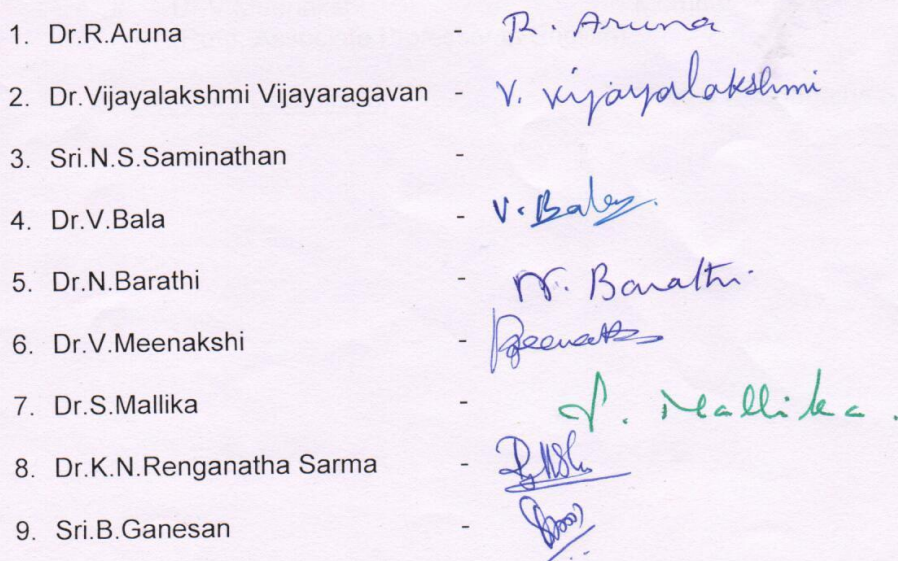 1. Dr.R.Aruna - R. Aruna
2. Dr.Vijayalakshmi Vijayaragavan - V. Vijayalakshmi
3. Sri.N.S.Saminathan -
4. Dr.V.Bala - V. Bala
5. Dr.N.Barathi - N. Barathi
6. Dr.V.Meenakshi -
7. Dr.S.Mallika - S. Mallika.
8. Dr.K.N.Renganatha Sarma -
9. Sri.B.Ganesan -